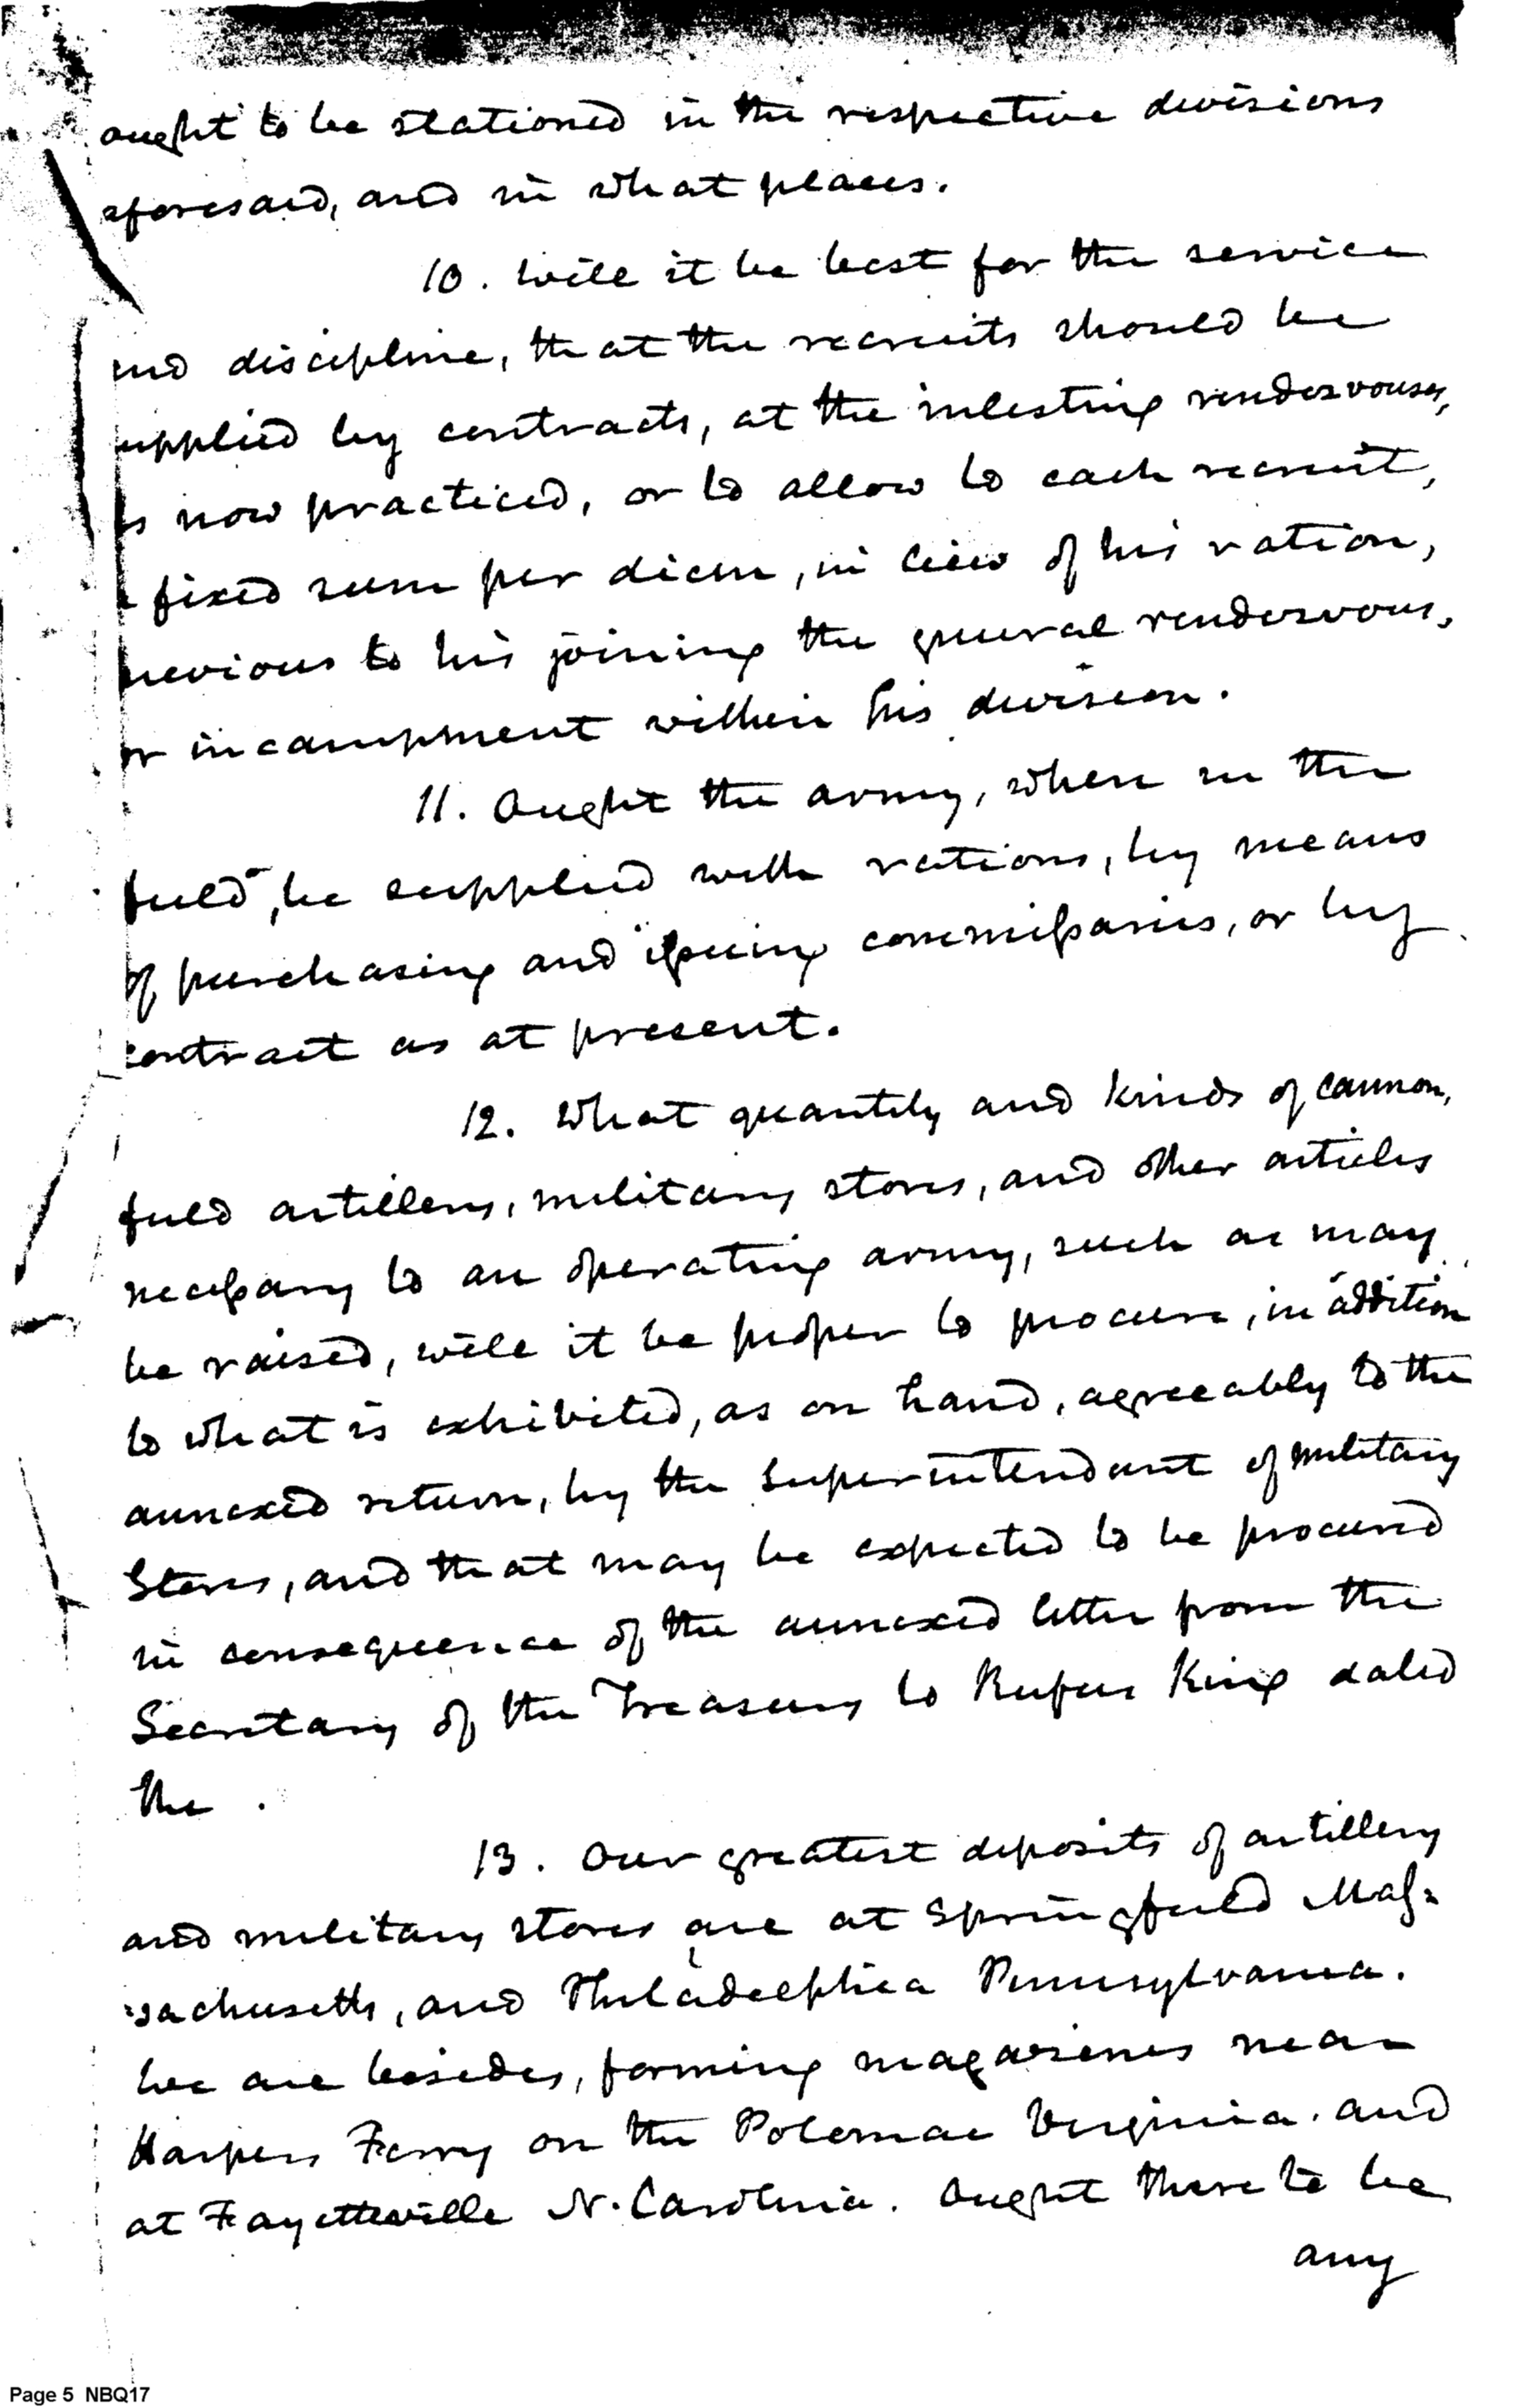 ought to be stationed in the respective divisions
aforesaid, and in what places.
10. Will it be best for the service
and discipline, that the recruits should be
supplied by contracts, at the inlisting rendezvouses,
as now practiced, or to allow to each recruit,
a fixed sum per diem, in lieu of his ration,
previous to his joining the general rendezvous,
or incampment within his division.
11. Ought the army, when in the
field, be supplied with rations, by means
of purchasing and issuing commissaries, or by
contract as at present.
12. What quantity and kinds of cannon,
field artillery, military stores, and other articles
necessary to an operating army, such as may
be raised, will it be proper to procure, in addition
to what is exhibited, as on hand, agreeably to the
annexed return, by the Superintendant of military
Stores, and that may be expected to be procured
in consequence of the annexed letter from the
Secretary of the Treasury to Rufus King dated
the .
13. Our greatest deposits of artillery
and military stores are at Springfield Mas=
sachusetts, and Philadelphia Pennsylvania.
We are besides, forming magazines near
Harpers Ferry on the Potomac Virginia. and
at Fayetteville N. Carolina. Ought there to be
any
Page 5 NBQ17